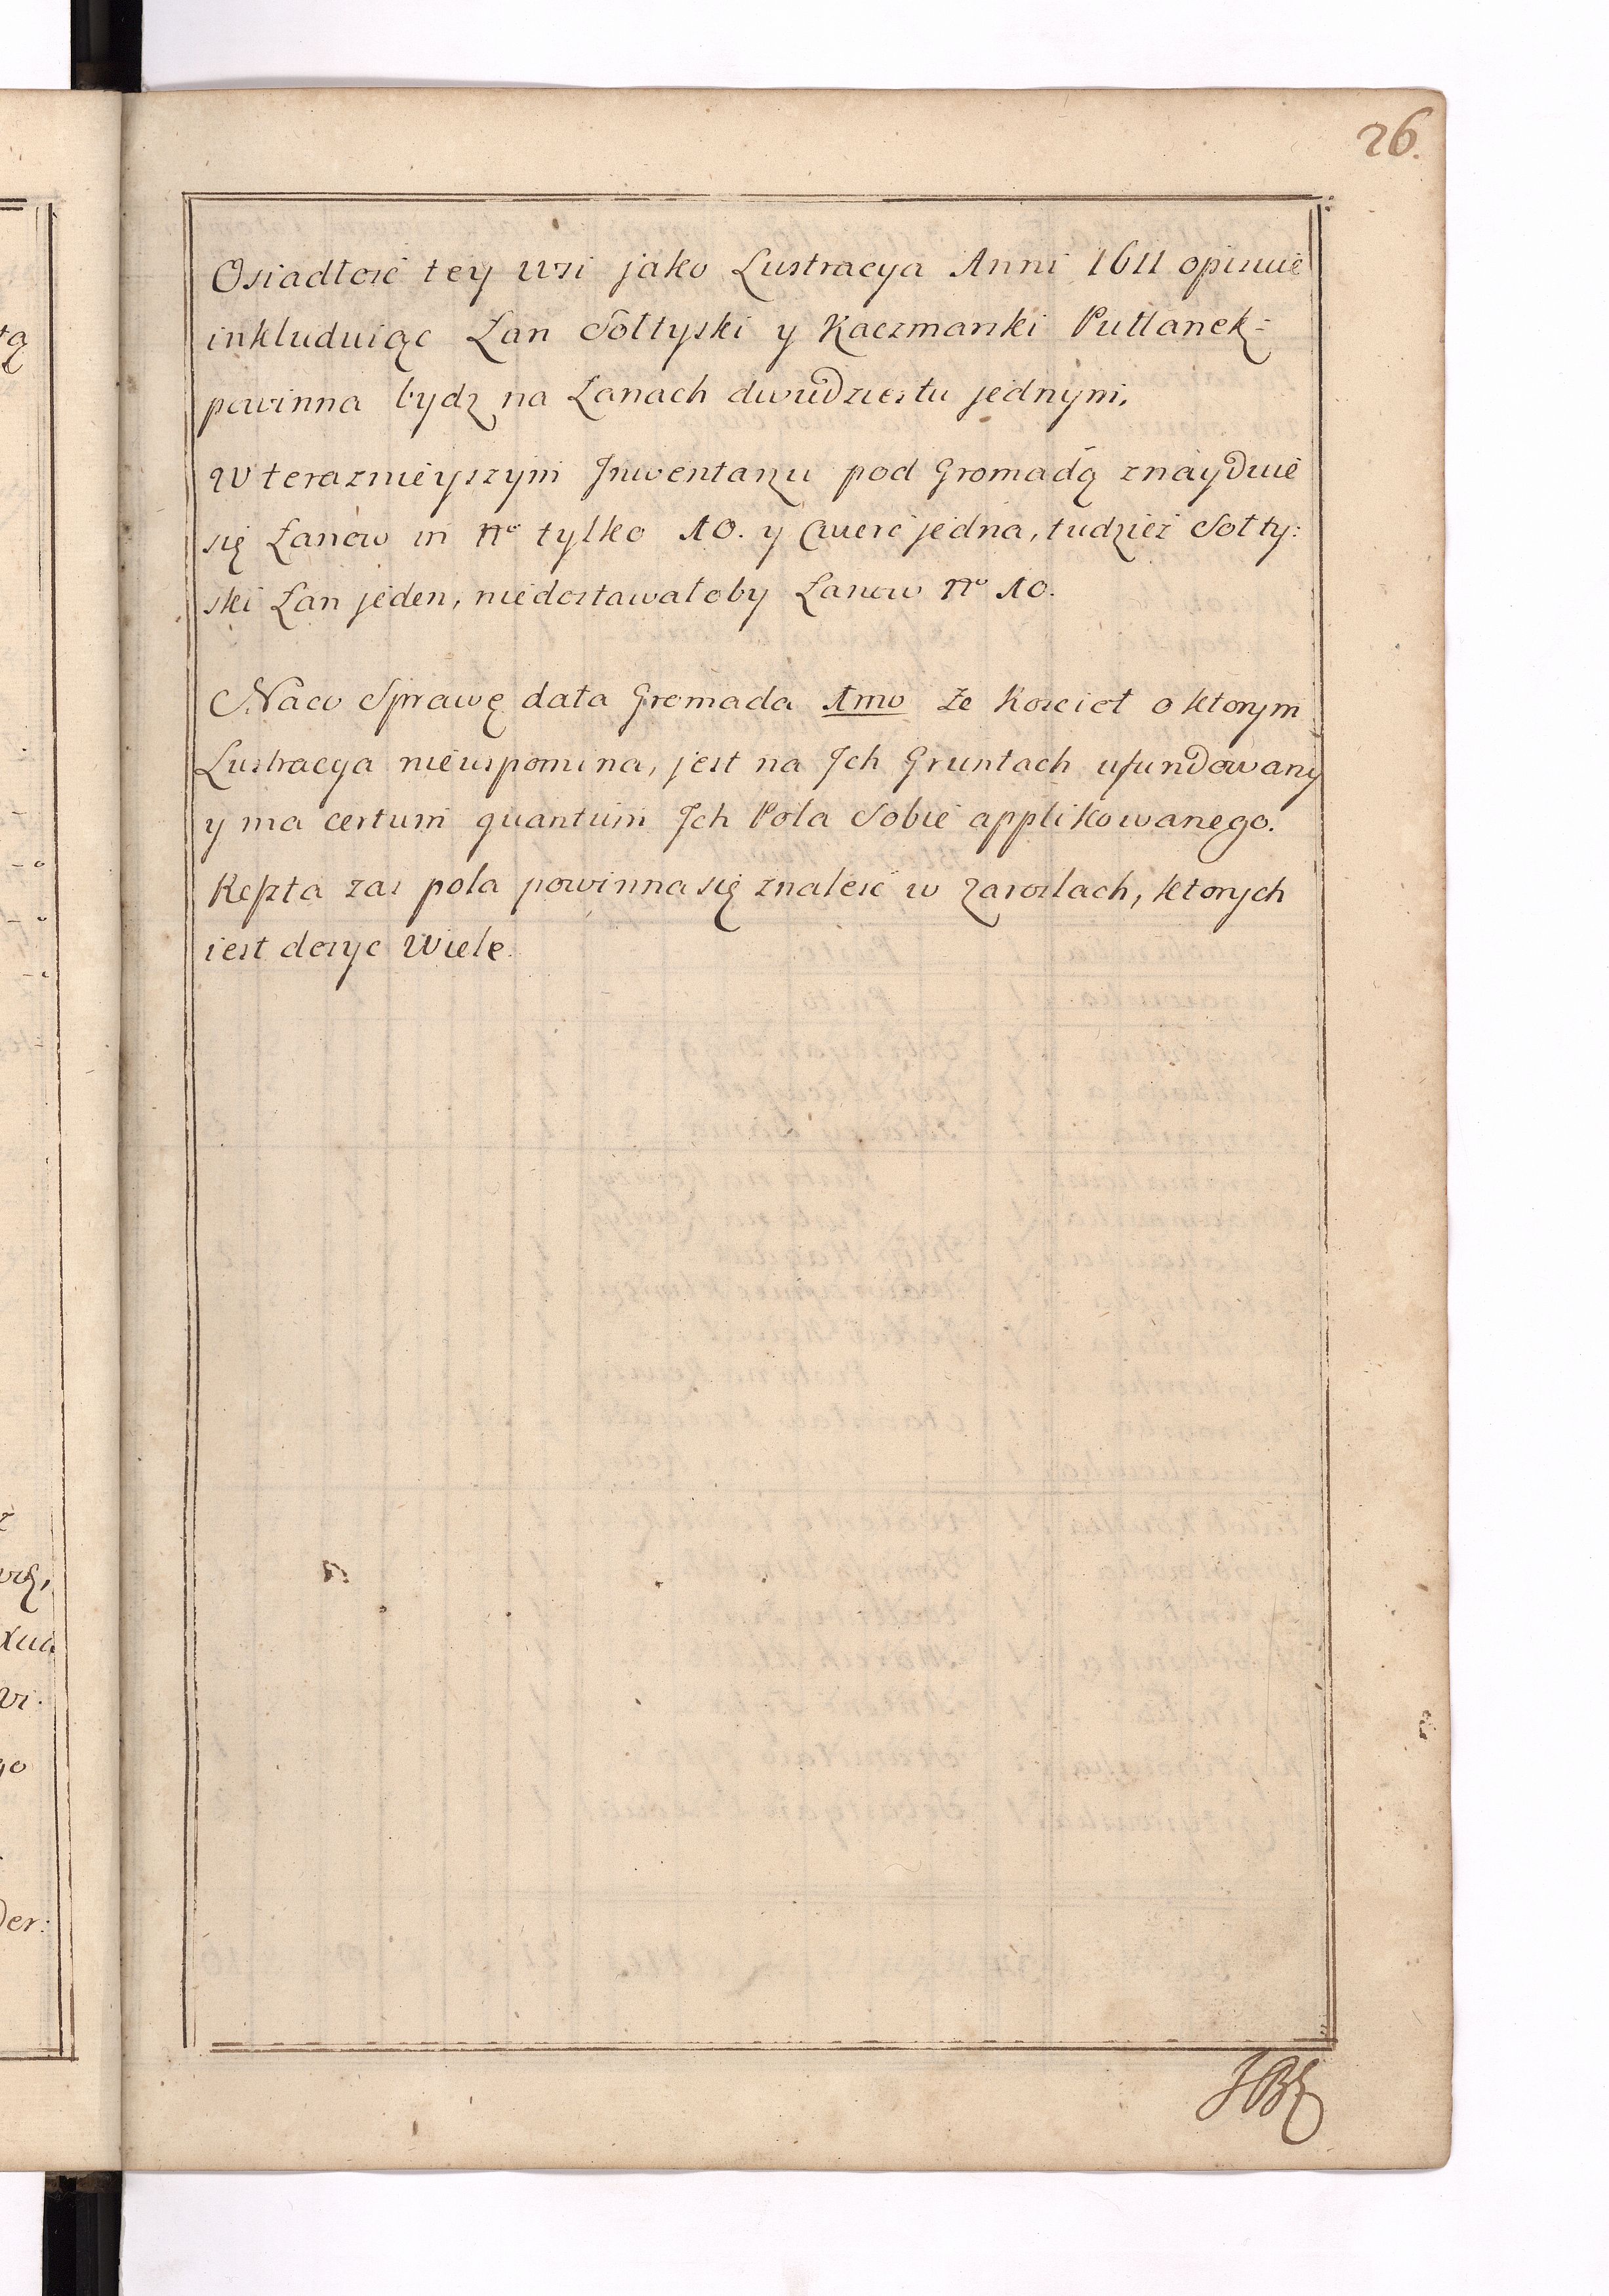 26.
Osiadłość tey wsi jako Lustracya Anni 1611 opisuie
inkluduiąc Łan Sołtyski y Kaczmarski Pułłanek=
powinna bydz na Łanach dwudziestu jednym.
W teraznieyszym Jnwentarzu pod Gromadą znayduie
się Łanów in Nro tylko 10. y Cwerć jedna, tudzież Sołty:
ski Łan jeden, niedostawałoby Łanow Nro 10.
Naco Sprawę dała Gromada 1mo że Kościoł o ktorym
Lustracya niewspomina, jest na Jch Gruntach ufundowany
y ma certum quantum Jch Pola Sobie applikowanego.
Reszta zas pola powinna się znaleść w Zaroslach, ktorych
iest dosyc Wiele.